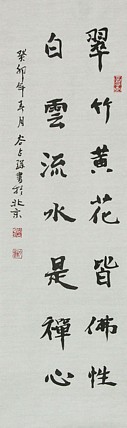 翠竹黄花皆佛性
白雲流水是禪心
癸卯年
書於北京